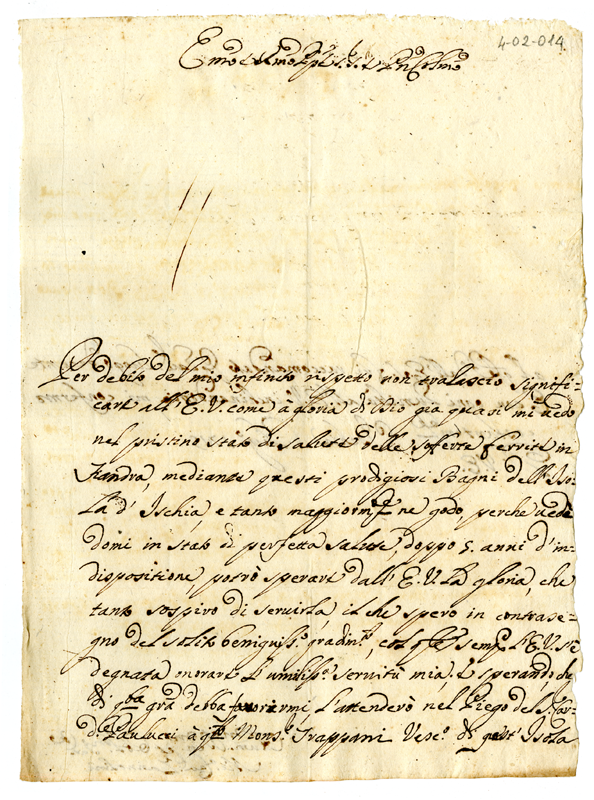 4-02-014
Emo e Rmo Sige
Per debito del mio infinito rispetto non tralascio signifi-
care all'E.V. come à gloria di Idio gia quasi mi vedo
nel pristino stato di salute delle sofferte ferrite in
Fiandra, mediante questi prodigiosi Bagni dell'Iso-
la d'Ischia, e tanto maggiormte ne godo, perche vedē
domi in stato di perfetta salute, doppo 5. anni d'in-
dispositione, potrò sperare dall'E.V. la gloria, che
tanto sospiro di servirla, il che spero in contrase-
gno del solito benigniss.o gradim.to, col qle sempe l'E.V. s'è
degnata onorare l'umiliss.a servitù mia, e sperando, che
di qsta gra debba favorirmi, l'attenderò nel Piego del S. Car-
d.le Paulucci à qsto Mons.r Trappani Vesc.o di quest'Isola